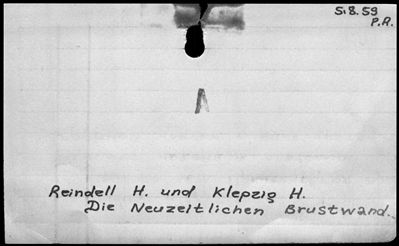 5.8.59
P.A.
A
Reindell H. und Klepzig H.
Die Neuzeitlichen Brustwand..